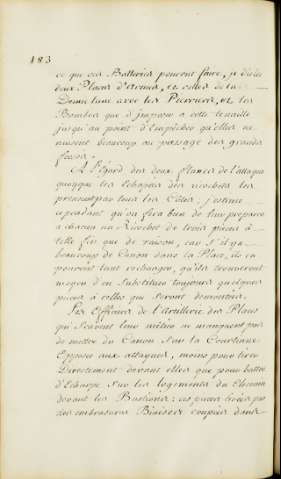 183
ce que ces Batteries peuvent faire,
deux Places d'armes, et celles de la
Demi lune avec les Pierriers, et les
Bombes que j'impose a cette tenaille
jusqu'au point d'Empêcher qu'elles ne
nuisent beaucoup au passage des grands
fossés.
A l'égard des deux flancs de l'attaque
quoyque les Echapés des ricochets les
prennent par tous les Côtés; j'estime
cependant qu'on fera bien de leur preparer
a chacun un Ricochet de trois pieces à
telle fin que de raison, car s'il y a
beaucoup de Canon dans la Place, ils en
pourront tant rechanger, qu'ils trouveront
moyen d'en Substituer toujours quelques
pieces à celles qui seront demontées.
Les Officiers de l'Artillerie des Places
qui Scavent leur métier ne manquent pas
de mettre du Canon Sur la Courtinne
Opposée aux attaques, moins pour tirer
Directement devant elles que pour battre
d'Echarpe Sur les logements du Chemin
devant les Bastions; ces pieces tirées par
des embrasures Biaisées coupées dans